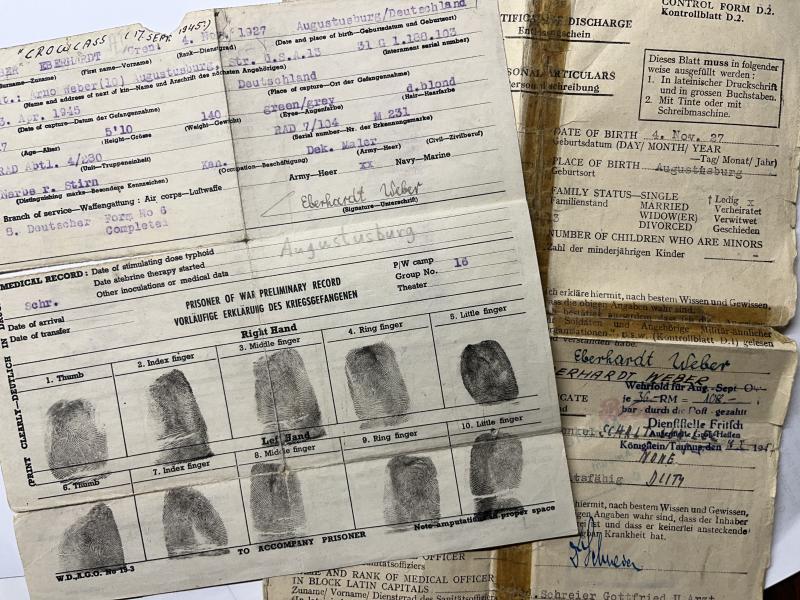 "CROWCASS" (17. SEPT. 1945?)
EBERHARDT
4. Nov. 1927
Augustusburg/Deutschland
(First name—Vorname)
(Rank—Dienstgrad)
(Date and place of birth—Geburtsdatum und Geburtsort)
Arno Weber(10) Augustusburg, Str. d.S.A.13
31 G 1.188.103
(Name and address of next of kin—Name und Anschrift des nächsten Angehörigen)
(Internment serial number)
Apr. 1945
Deutschland
(Date of capture—Datum der Gefangennahme)
(Place of capture—Ort der Gefangennahme)
5'10
140
green/grey
d.blond
(Age—Alter)
(Height—Grösse)
(Weight—Gewicht)
(Eyes—Augenfarbe)
(Hair—Haarfarbe)
RAD Abtl. 4/230
RAD 7/104 M 231
(Unit—Truppeneinheit)
(Serial number—Nr. der Erkennungsmarke)
Narbe r. Stirn
Dek. Maler
(Distinguishing marks—Besondere Kennzeichen)
(Occupation—Beschäftigung)
(Army—Heer)
(Civil—Zivilberuf)
Branch of service—Waffengattung: Air corps—Luftwaffe
Army—Heer xx Navy—Marine
S. Deutscher Form No 6
Completed
Eberhardt Weber
(Signature—Unterschrift)
Augustusburg
MEDICAL RECORD: Date of stimulating dose typhoid
Date atebrine therapy started
Other inoculations or medical data
Schr.
Date of arrival
Date of transfer
P/W camp 16
Group No.
Theater
PRISONER OF WAR PRELIMINARY RECORD
VORLÄUFIGE ERKLÄRUNG DES KRIEGSGEFANGENEN
(PRINT CLEARLY—DEUTLICH IN
Right Hand
1. Thumb
2. Index finger
3. Middle finger
4. Ring finger
5. Little finger
Left Hand
6. Thumb
7. Index finger
8. Middle finger
9. Ring finger
10. Little finger
TO ACCOMPANY PRISONER
Note amputations in proper space
W.D., A.G.O. No 19-3
CONTROL FORM D.2.
Kontrollblatt D.2.
DISCHARGE
PARTICULARS
Dieses Blatt muss in folgender
weise ausgefüllt werden:
1. In lateinischer Druckschrift
und in grossen Buchstaben.
2. Mit Tinte oder mit
Schreibmaschine.
DATE OF BIRTH 4. Nov. 27
Geburtsdatum (DAY/ MONTH/ YEAR
—Tag/ Monat/ Jahr)
PLACE OF BIRTH Augustusburg
Geburtsort
FAMILY STATUS—SINGLE † Ledig x
Familienstand MARRIED Verheiratet
WIDOW(ER) Verwitwet
DIVORCED Geschieden
NUMBER OF CHILDREN WHO ARE MINORS
Zahl der minderjährigen Kinder
erkläre hiermit, nach bestem Wissen und Gewissen,
(Kontrollblatt D.1) gelesen
Eberhardt Weber
EBERHARDT WEBER
Wehrsold für Aug.-Sept
je 36 RM = 108.-
bar - durch die Post - gezahlt
Dienststelle Fritsch
Königstein/Taunus, den
NONE
DUTY
hiermit, nach bestem Wissen und Gewissen,
Angaben wahr sind, dass der Inhaber
ist und dass er keinerlei ansteckende
Krankheit hat.
OFFICER
NAME AND RANK OF MEDICAL OFFICER
IN BLOCK LATIN CAPITALS
Zuname/ Vorname/ Dienstgrad des Sanitätsoffiziers
Schreier Gottfried U.Arzt